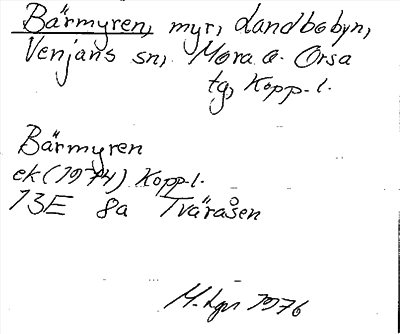 Bärmyren, myr, Landbobyn,
Venjans sn, Mora o. Orsa
tg, Kopp-l.
Bärmyren
ek (1974) Kopp-l.
13E 8a Tväråsen
1976